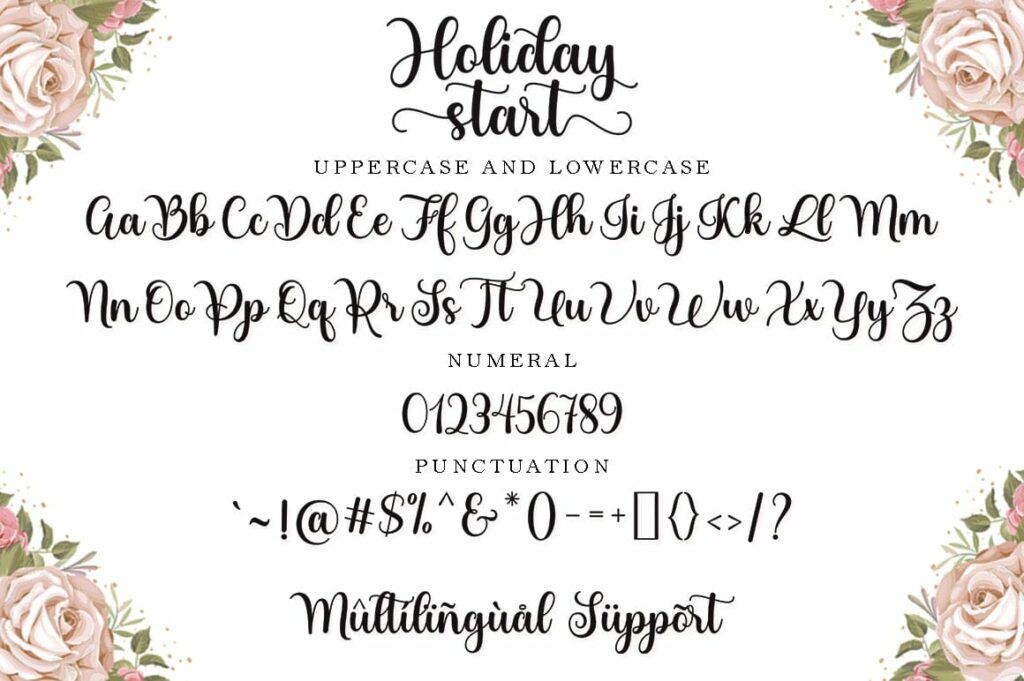 Holiday
start
UPPERCASE AND LOWERCASE
Aa Bb Cc Dd Ee Ff Gg Hh Ii Jj Kk Ll Mm
Nn Oo Pp Qq Rr Ss Tt Uu Vv Ww Xx Yy Zz
NUMERAL
0123456789
PUNCTUATION
`~!@#$%^&*()-=+[]{}<>/?
Mûltíliñgùål Süppõrt